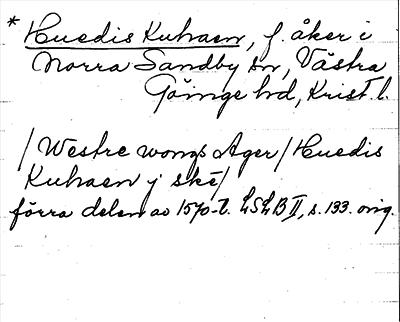 * Huedis Kuhraen, f. åker i
Norra Sandby sn, Västra
Göinge hd, Krist. l.
/ Westre wongs Ager / Huedis
Kuhraen j ské /
förra delen av 1570-t. LSLB II, s. 133. orig.